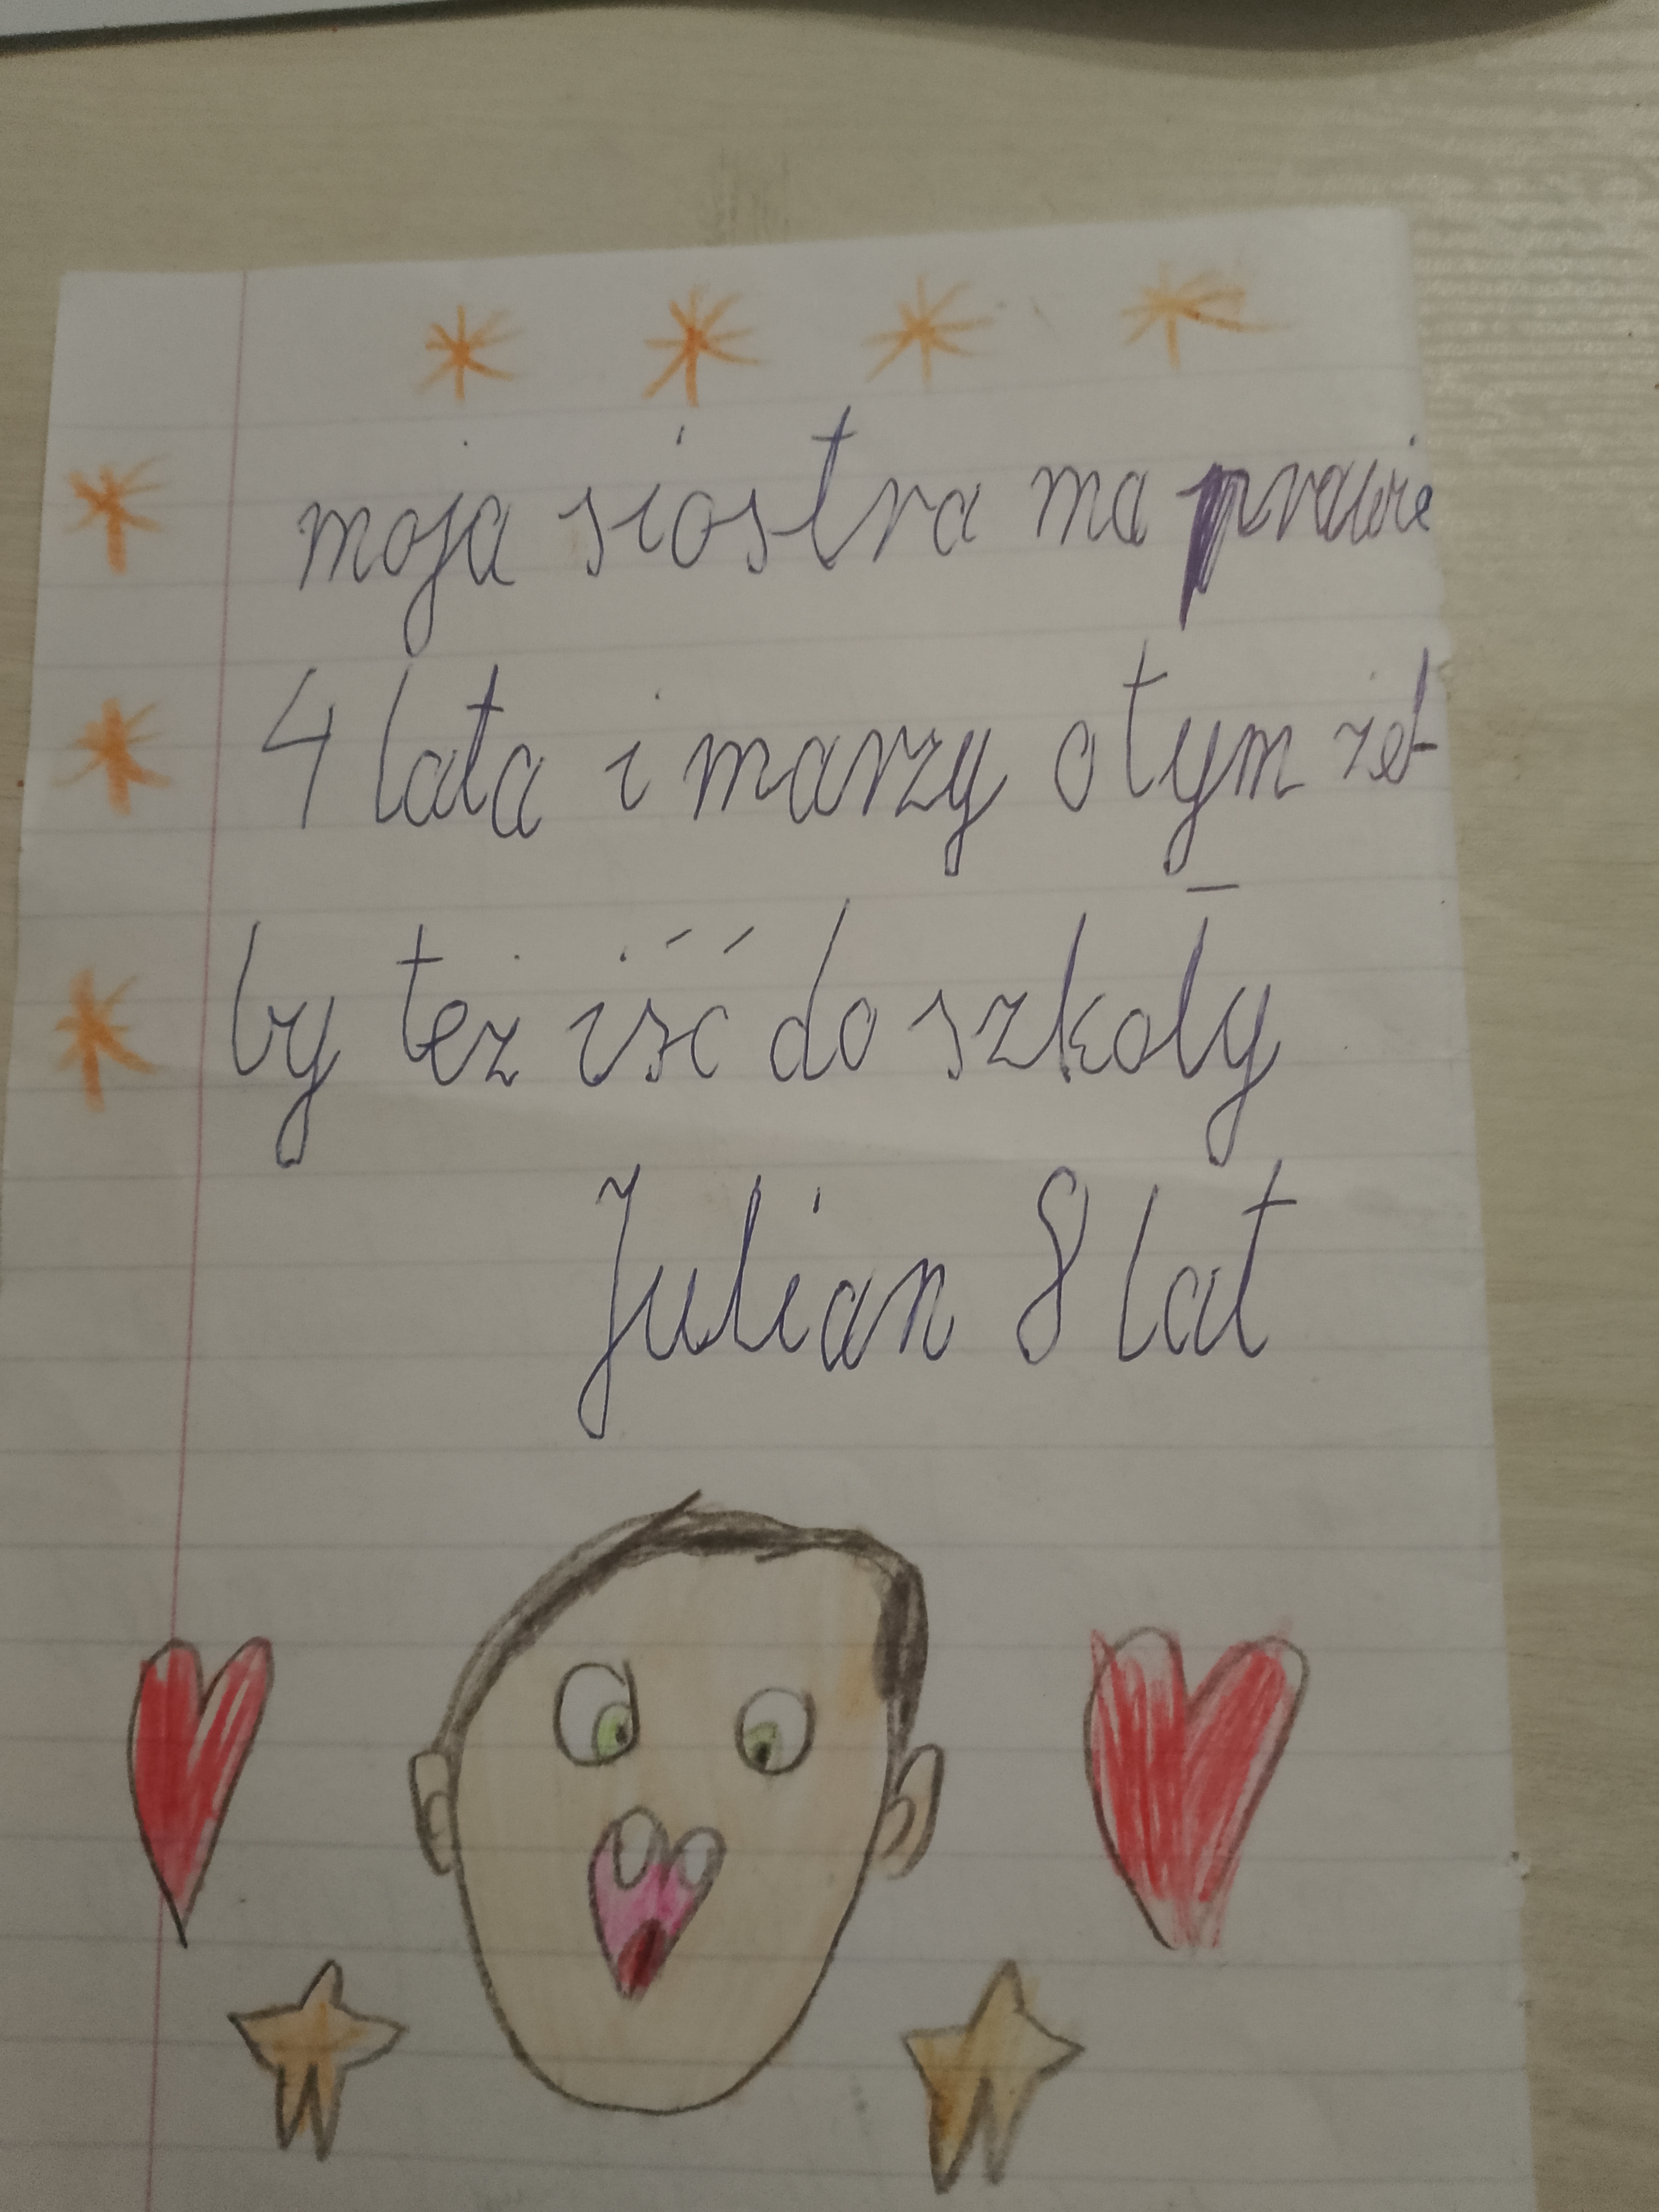 moja siostra ma prawie
4 lata i marzy o tym żeb-
by też iść do szkoły
Julian 8 lat